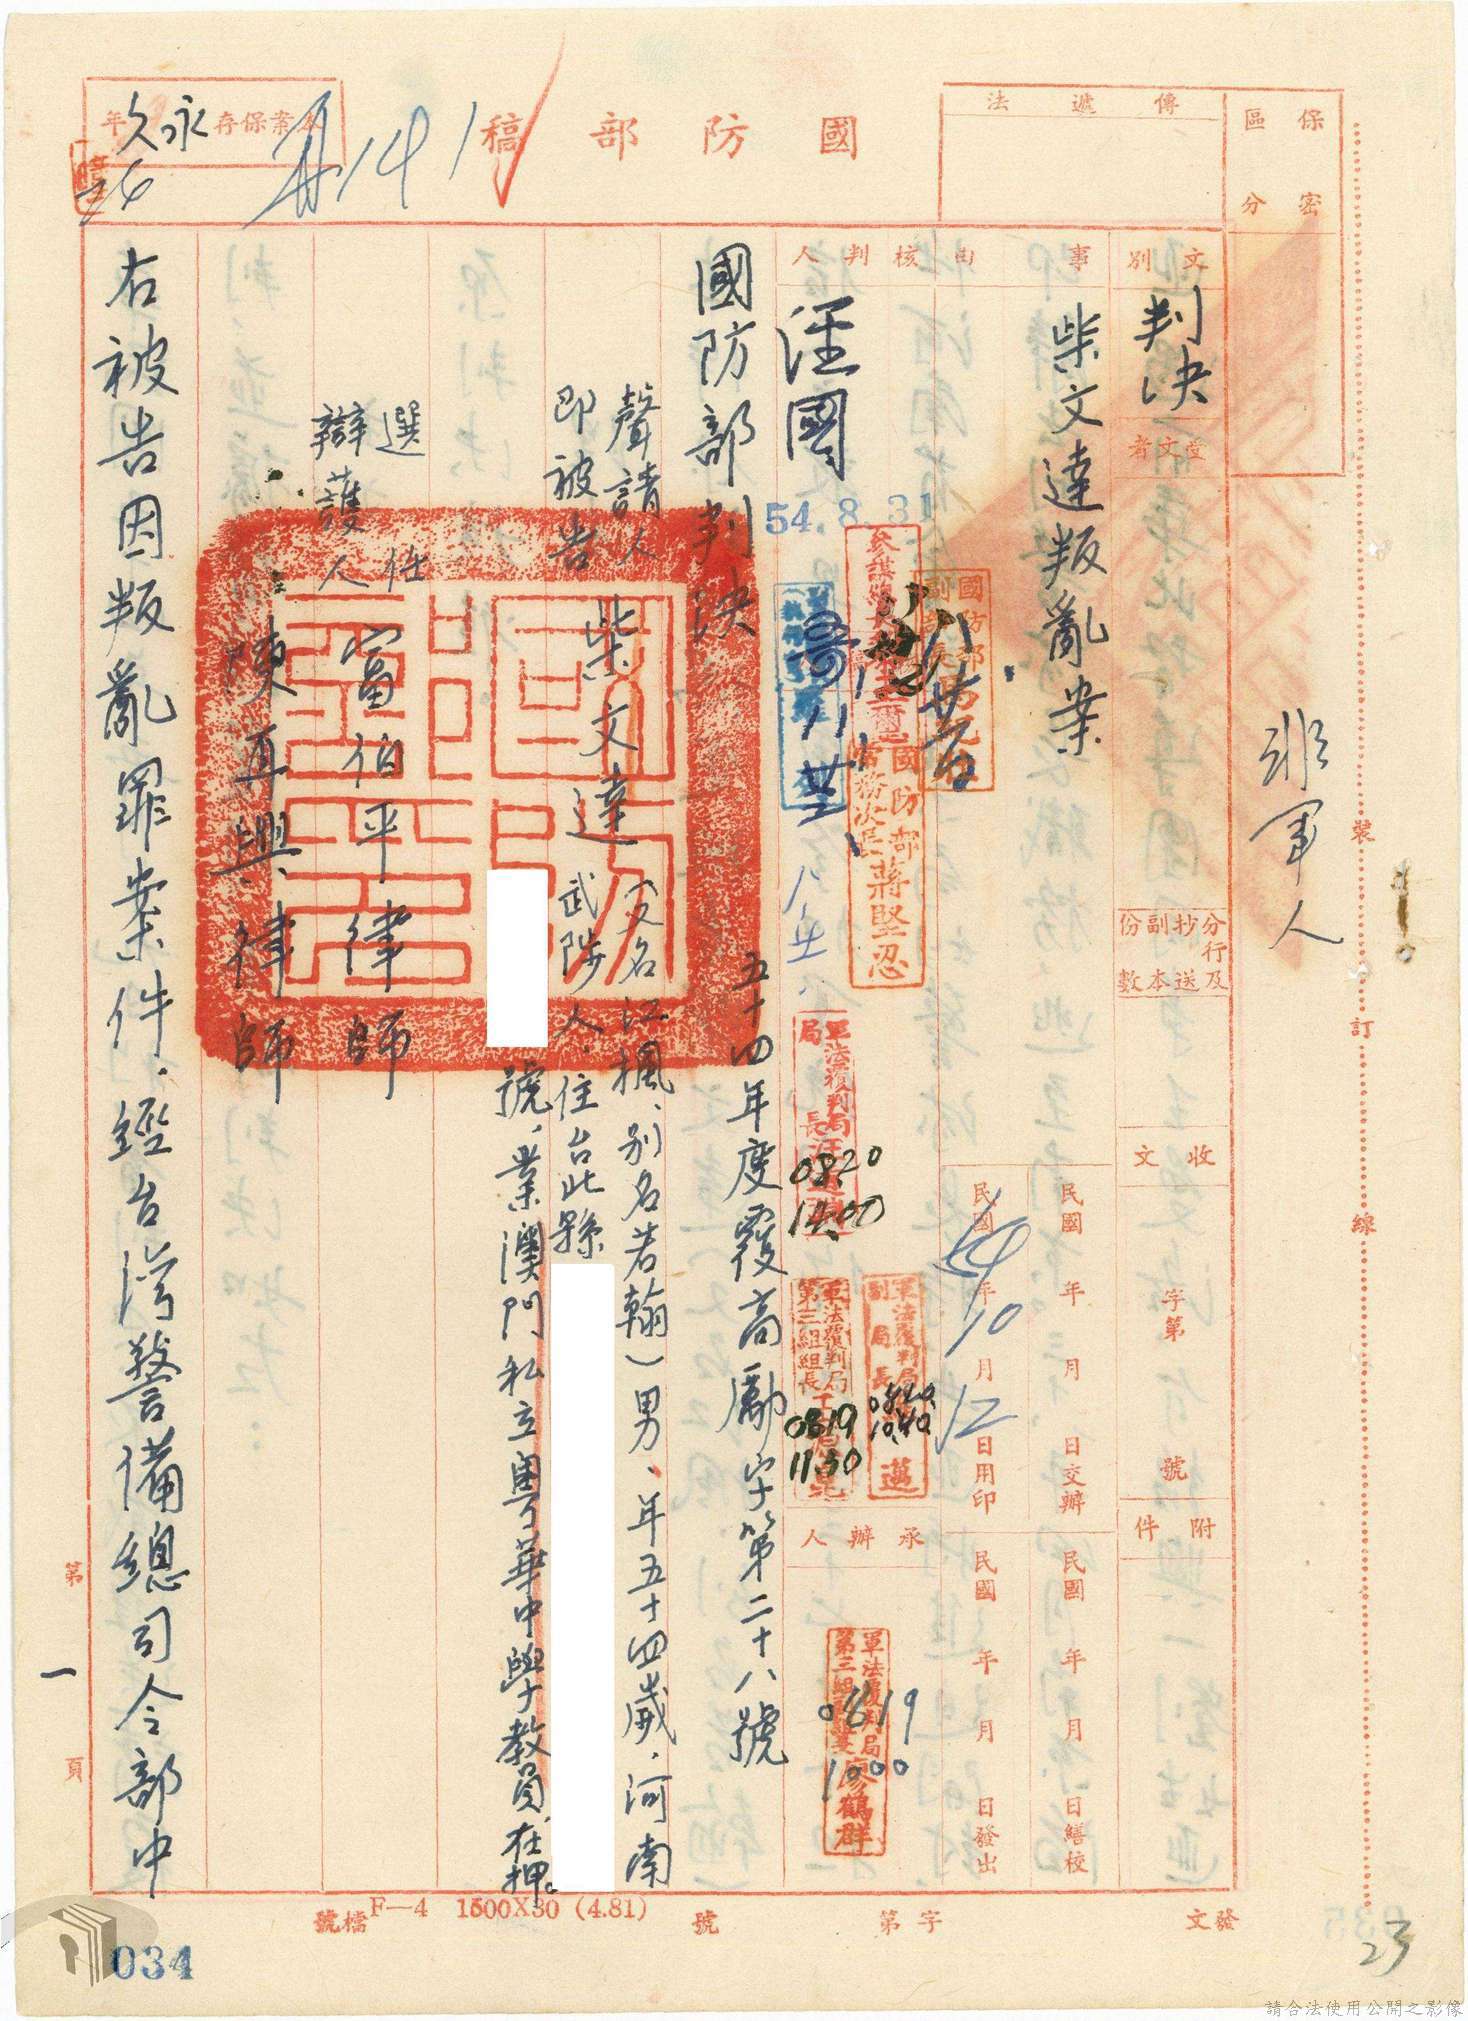 國防部稿
本案保存 永久 年
24
再141
傳遞法
保密
區分
非軍人
文別
判決
受文者
分行及抄送副本份數
收文
字第
號
附件
事由
柴文達叛亂案
民國 年 月 日交辦
民國 年 月 日繕校
民國 54 年 10 月 12 日用印
民國 年 月 日發出
核判人
經國
54.8.31
國防部
國防部常務次長蔣堅忍
軍法覆判局局長汪
0820
14.00
軍法覆判局副局長
0820
10.40
軍法覆判局第三組組長
0819
11.30
承辦人
軍法覆判局第三組
廖鶴群
0819
10.00
國防部判決
五十四年度覆高勵字第二十八號
聲請人
即被告
柴文達
(又名江楓、別名若翰)男、年五十四歲、河南
武陟人、住台北縣
號、業澳門私立粵華中學教員、在押。
選任
辯護人
富伯平律師
陳再興律師
右被告因叛亂罪案件、經台灣警備總司令部中
第一頁
裝訂線
發文
字第
號
檔號
F—4 1500X30 (4.81)
034
23
請合法使用公開之影像